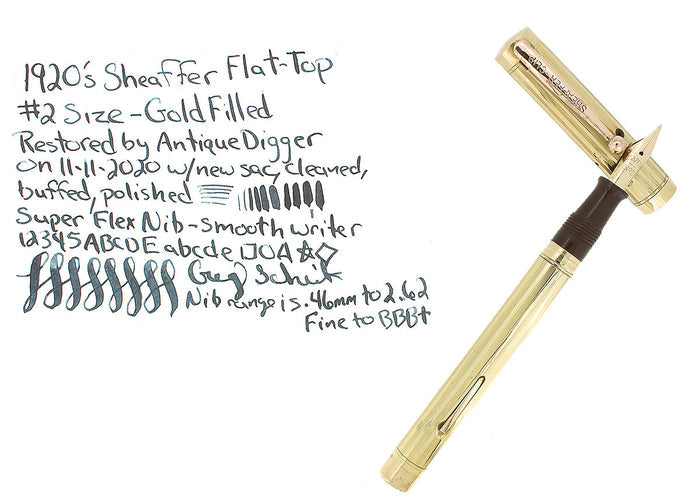 1920's Sheaffer Flat-Top
#2 Size - Gold Filled
Restored by AntiqueDigger
on 11-11-2020 w/new sac, cleaned,
buffed, polished
Super Flex Nib - smooth writer
12345ABCDE abcde
Greg
Nib range is .46mm to 2.62
Fine to BBB+
SHEAFFER-CLIP